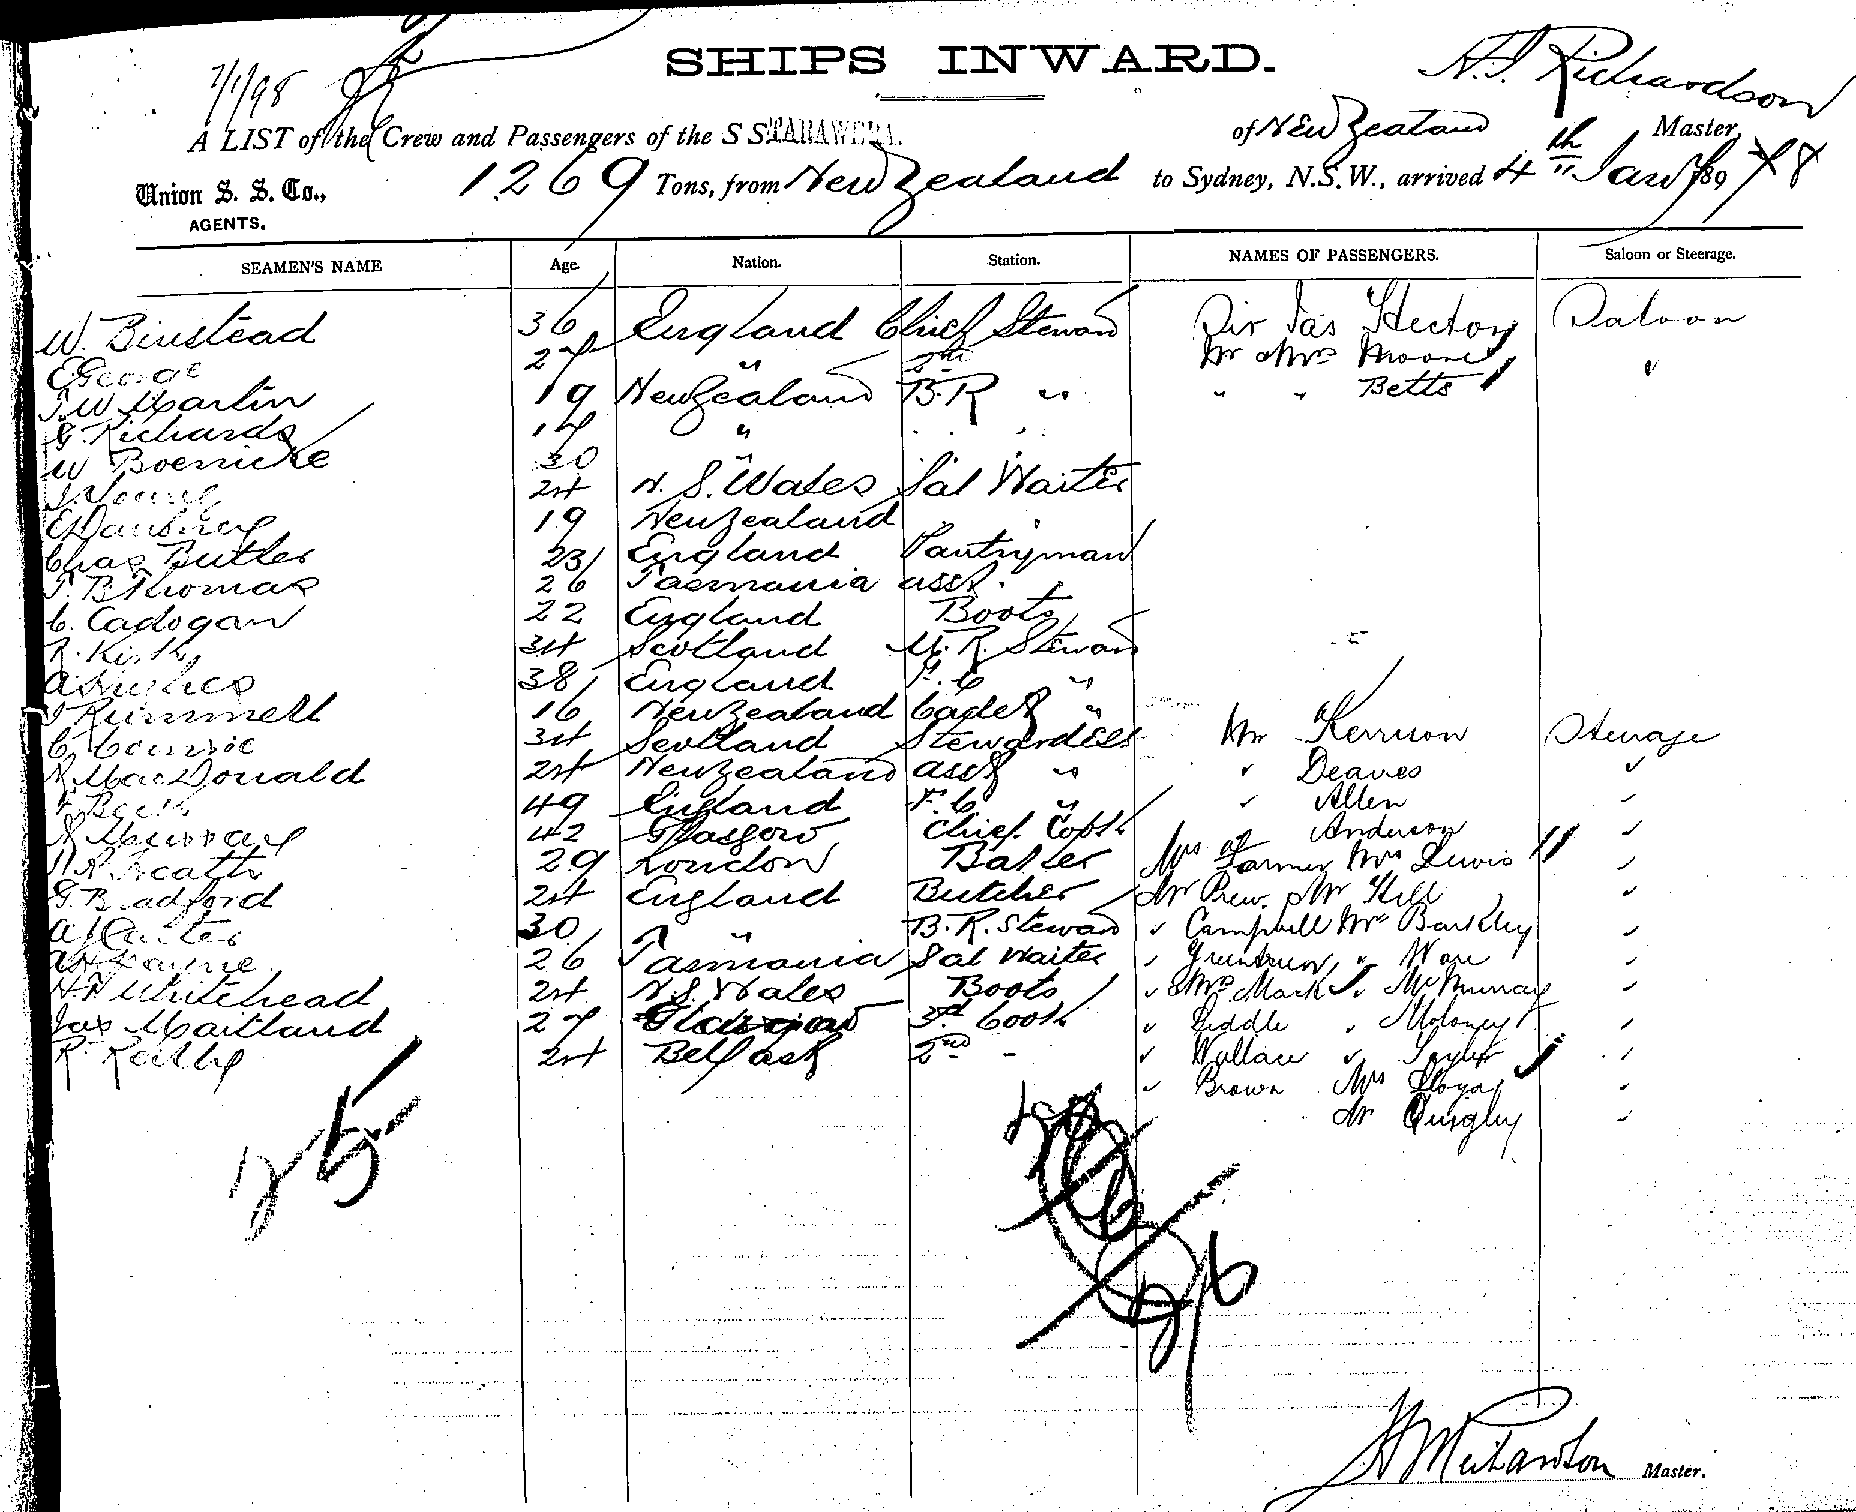 SHIPS INWARD.
7/1/98
H.J. Richardson
A LIST of the Crew and Passengers of the S S TARAWERA. of New Zealand Master,
Union S. S. Co., 1269 Tons, from New Zealand to Sydney, N.S.W., arrived 4th Jany 1898
AGENTS.
SEAMEN'S NAME Age. Nation. Station. NAMES OF PASSENGERS. Saloon or Steerage.
W. Binstead 36 England Chief Steward Sir Jas Hector Saloon
E George 27 " 2nd Mr & Mrs Moore "
J.W. Martin 19 New Zealand B.R " " " Betts
G. Richards 17 "
W Boenicke 30 "
J Young 24 N. S. Wales Sal Waiter
19 New Zealand
Chas Butler 23 England Pantryman
T. B Thomas 26 Tasmania asst.
C. Cadogan 22 England Boots
R. Kirk 34 Scotland M. R. Steward
A Hughes 38 England F. C "
J Rummell 16 New Zealand Cadet "
34 Scotland Stewardess Mr Kerrison Steerage
MacDonald 24 New Zealand asst " " Deaves "
49 England F. C " " Allen "
42 Glasgow Chief Cook Anderson "
29 London Baker Mrs Farmer Mrs Lewis "
G. Bradford 24 England Butcher Mr Prew. Mr Hill "
30 " B. R. Steward " Campbell Mr Barkley "
26 Tasmania Sal Waiter " " Ware "
Whitehead 24 N. S. Wales Boots " Mrs Mack " McMurray "
Jas Maitland 27 Glasgow 3rd Cook " Liddle " Moloney "
R. Reilly 24 Belfast 2nd " " Wallace " Taylor "
" Brown Mrs Lloyd "
Mr Quigley "
Master.